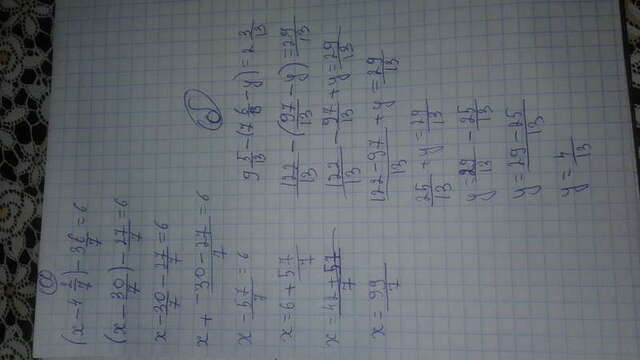 а
(x - 4 2/7) - 3 6/7 = 6
(x - 30/7) - 27/7 = 6
x - 30/7 - 27/7 = 6
x + (-30 - 27)/7 = 6
x - 57/7 = 6
x = 6 + 57/7
x = (42 + 57)/7
x = 99/7
б
9 5/13 - (7 6/13 - y) = 2 3/13
122/13 - (97/13 - y) = 29/13
122/13 - 97/13 + y = 29/13
(122 - 97)/13 + y = 29/13
25/13 + y = 29/13
y = 29/13 - 25/13
y = (29 - 25)/13
y = 4/13